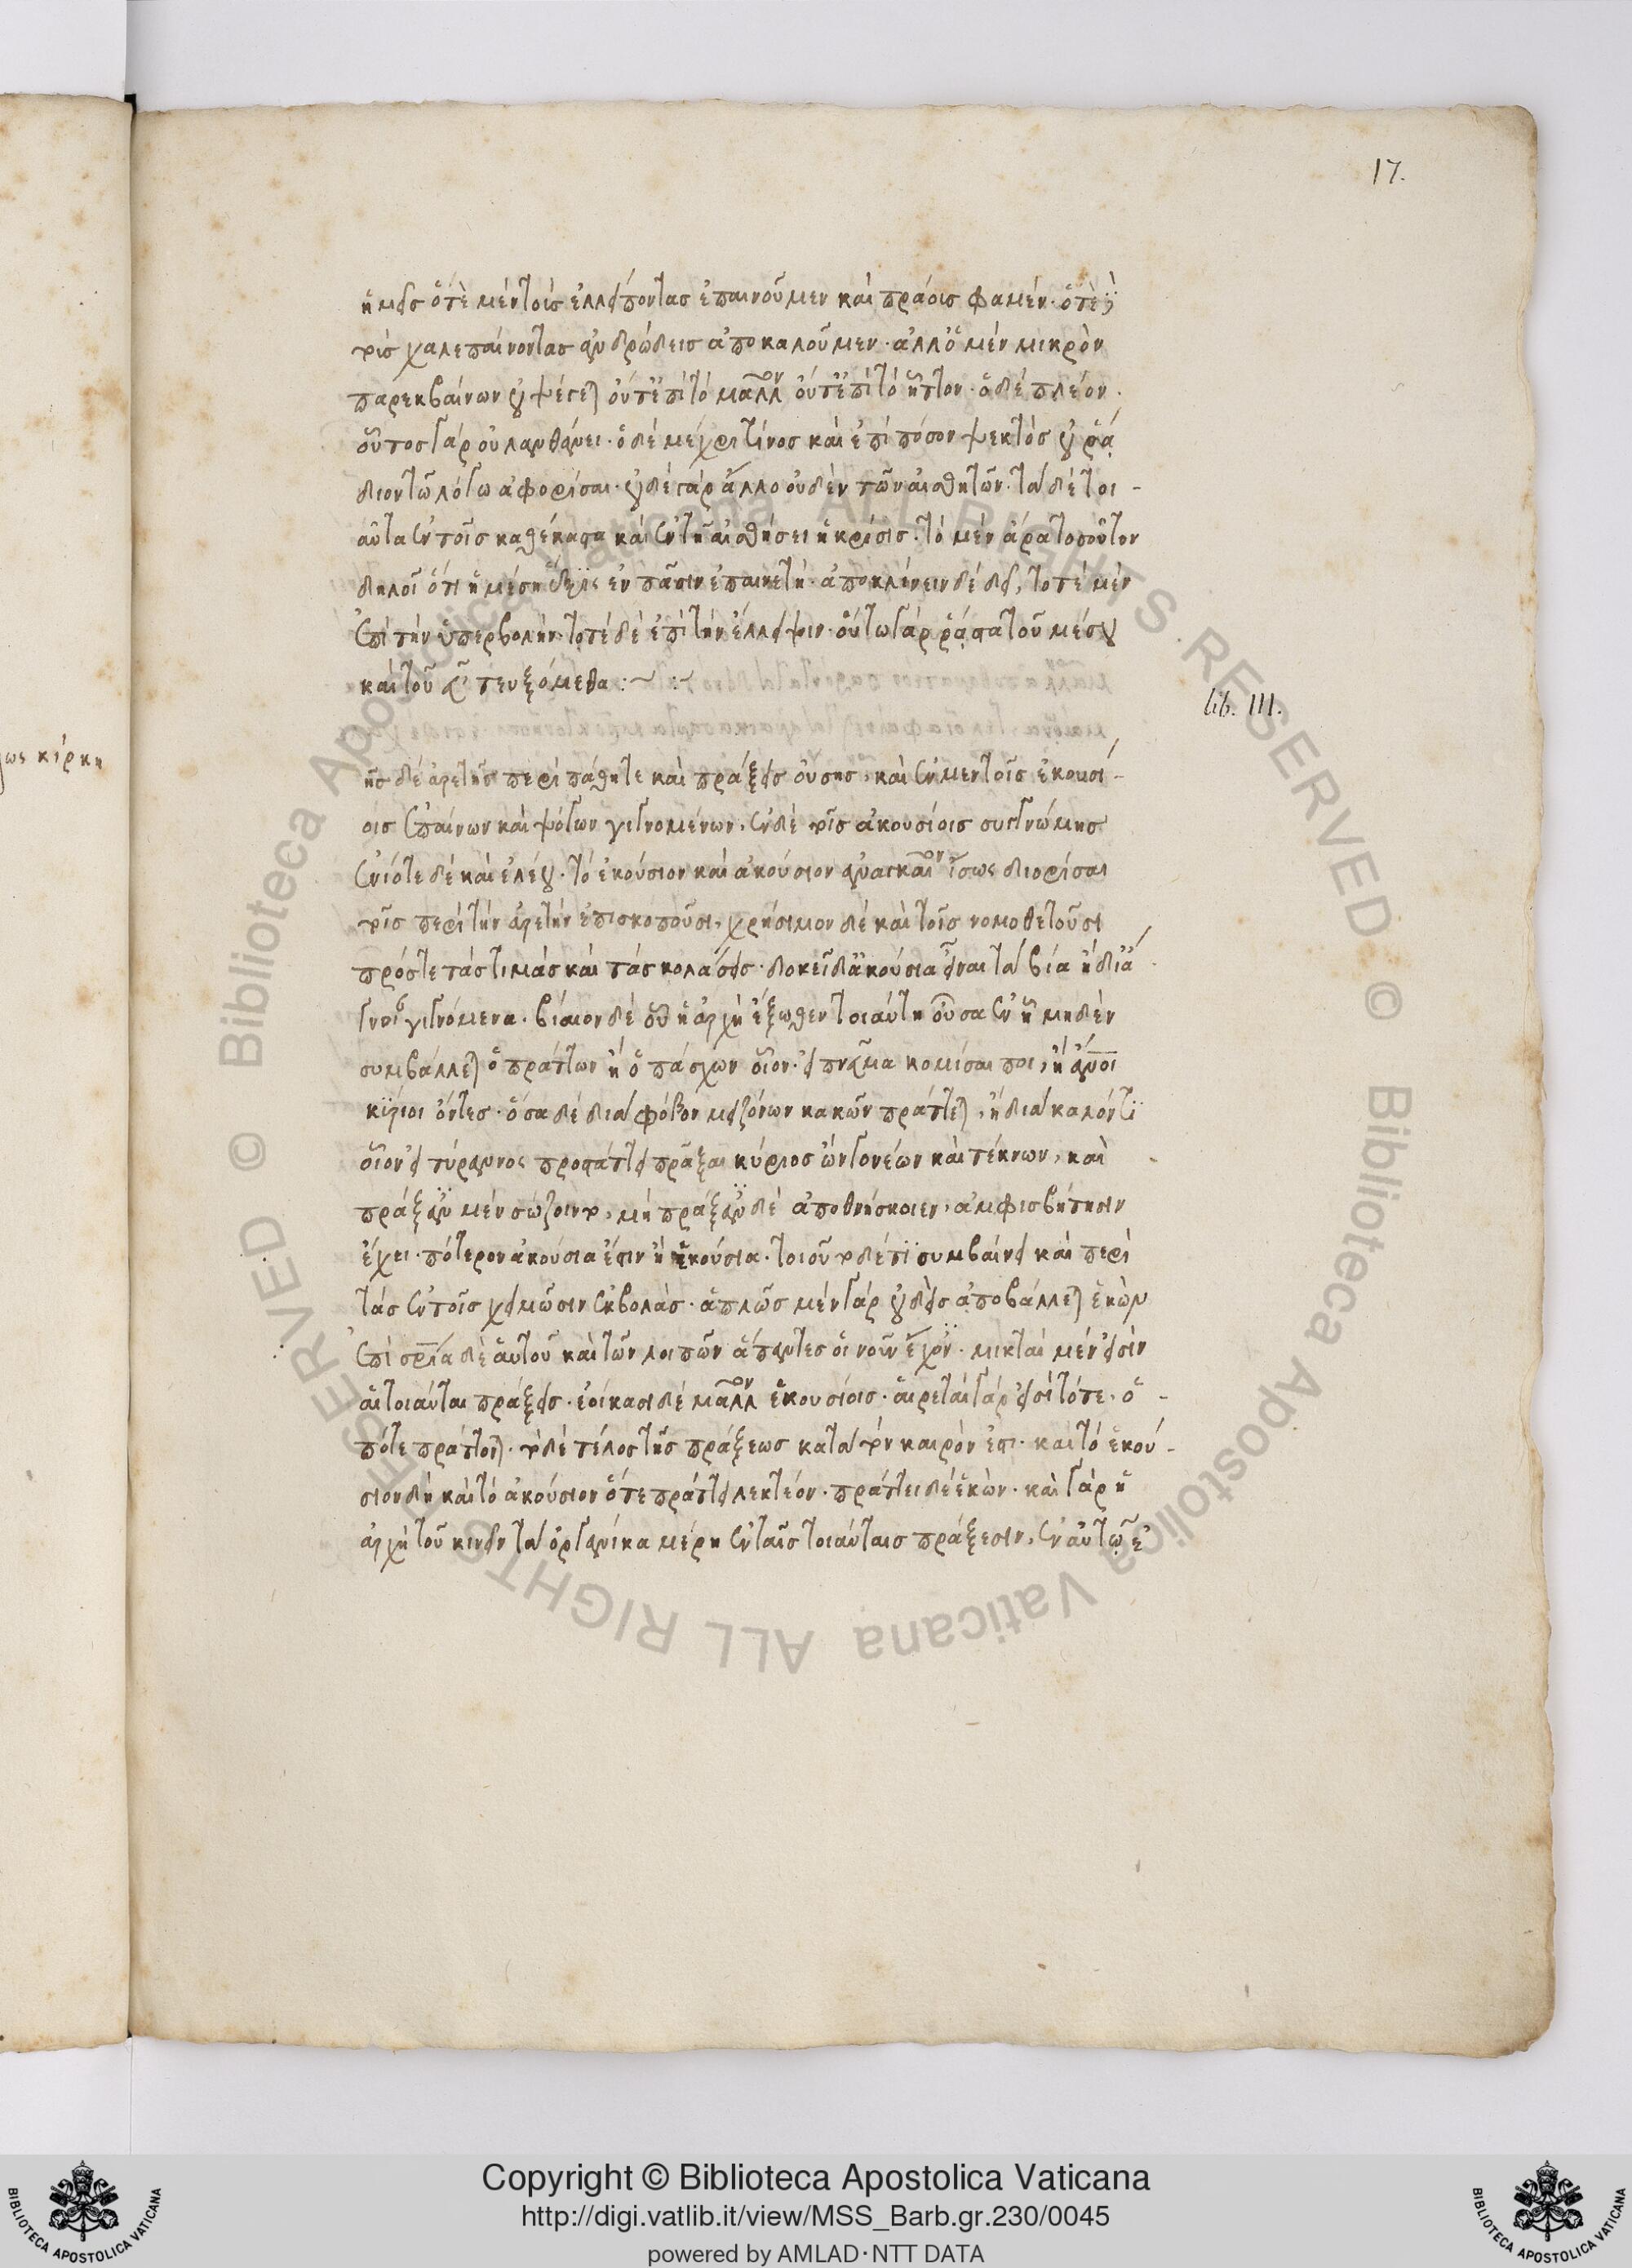 17.
ἡμεῖς ὁτὲ μὲν τοὺς ἐλλείποντας ἐπαινοῦμεν καὶ πράους φαμέν· ὁτὲ δὲ
τοὺς χαλεπαίνοντας ἀνδρώδεις ἀποκαλοῦμεν· ἀλλ' ὁ μὲν μικρὸν
παρεκβαίνων οὐ ψέγεται οὔτ' ἐπὶ τὸ μᾶλλον οὔτ' ἐπὶ τὸ ἧττον· ὁ δὲ πλέον·
οὗτος γὰρ οὐ λανθάνει· ὁ δὲ μέχρι τίνος καὶ ἐπὶ πόσον ψεκτὸς οὐ ῥᾴ
διον τῶ λόγω ἀφορίσαι· οὐδὲ γὰρ ἄλλο οὐδὲν τῶν αἰσθητῶν· τὰ δὲ τοι-
αῦτα ἐν τοῖς καθέκαστα καὶ ἐν τῆ αἰσθήσει ἡ κρίσις· τὸ μὲν ἄρα τοσοῦτον
δηλοῖ ὅτι ἡ μέση ἕξις ἐν πᾶσιν ἐπαινετή· ἀποκλίνειν δὲ δεῖ, τοτὲ μὲν
ἐπὶ τὴν ὑπερβολήν· τοτὲ δὲ ἐπὶ τὴν ἔλλειψιν· οὕτω γὰρ ῥᾷστα τοῦ μέσου
καὶ τοῦ εὖ τευξόμεθα :~ :~
lib. III.
ως κίρκη
ῆς δὲ ἀρετῆς περὶ πάθη τε καὶ πράξεις οὔσης, καὶ ἐν μὲν τοῖς ἑκουσί-
οις ἐπαίνων καὶ ψόγων γιγνομένων, ἐν δὲ τοῖς ἀκουσίοις συγγνώμης
ἐνίοτε δὲ καὶ ἐλέου· τὸ ἑκούσιον καὶ ἀκούσιον ἀναγκαῖον ἴσως διορίσαι
τοῖς περὶ τὴν ἀρετὴν ἐπισκοποῦσι, χρήσιμον δὲ καὶ τοῖς νομοθετοῦσι
πρός τε τὰς τιμὰς καὶ τὰς κολάσεις· δοκεῖ δ' ἀκούσια εἶναι τὰ βία ἢ δι' ἄ
γνοι γιγνόμενα· βίαιον δὲ οὗ ἡ ἀρχὴ ἔξωθεν τοιαύτη οὖσα ἐν ἧ μηδὲν
συμβάλλεται ὁ πράττων ἢ ὁ πάσχων οἷον· εἰ πνεῦμα κομίσαι ποι, ἢ ἄνοι
κύριοι ὄντες· ὅσα δὲ διὰ φόβον μειζόνων κακῶν πράττεται, ἢ διὰ καλόν τι
οἷον εἰ τύραννος προστάττει πρᾶξαι κύριος ὢν γονέων καὶ τέκνων, καὶ
πράξαν μὲν σώζοιντο, μὴ πράξαν δὲ ἀποθνήσκοιεν, ἀμφισβήτησιν
ἔχει· πότερον ἀκούσια ἐστιν ἢ ἑκούσια· τοιοῦτο δέ τι συμβαίνει καὶ περὶ
τὰς ἐν τοῖς χειμῶσιν ἐκβολάς· ἁπλῶς μὲν γὰρ οὐδεὶς ἀποβάλλεται ἑκών
ἐπὶ σρία δὲ αὑτοῦ καὶ τῶν λοιπῶν ἅπαντες οἱ νοῦν ἔχον· μικταὶ μὲν εἰσὶν
αἱ τοιαῦται πράξεις· ἐοίκασι δὲ μᾶλλον ἑκουσίοις· αἱρεταὶ γάρ εἰσι τότε, ὁ-
πότε πράττονται· τὸ δὲ τέλος τῆς πράξεως κατὰ τὸν καιρὸν ἐστι· καὶ τὸ ἑκού-
σιον δὴ καὶ τὸ ἀκούσιον ὅτε πράττει λεκτέον· πράττει δὲ ἑκών· καὶ γὰρ ἡ
ἀρχὴ τοῦ κινεῖν τὰ ὀργανικὰ μέρη ἐν ταῖς τοιαύταις πράξεσιν, ἐν αὐτῷ ἐ
© Biblioteca Apostolica Vaticana ALL RIGHTS RESERVED © Biblioteca Apostolica Vaticana ALL RIGHTS RESERVED
Copyright © Biblioteca Apostolica Vaticana
http://digi.vatlib.it/view/MSS_Barb.gr.230/0045
powered by AMLAD·NTT DATA
BIBLIOTECA APOSTOLICA VATICANA
BIBLIOTECA APOSTOLICA VATICANA